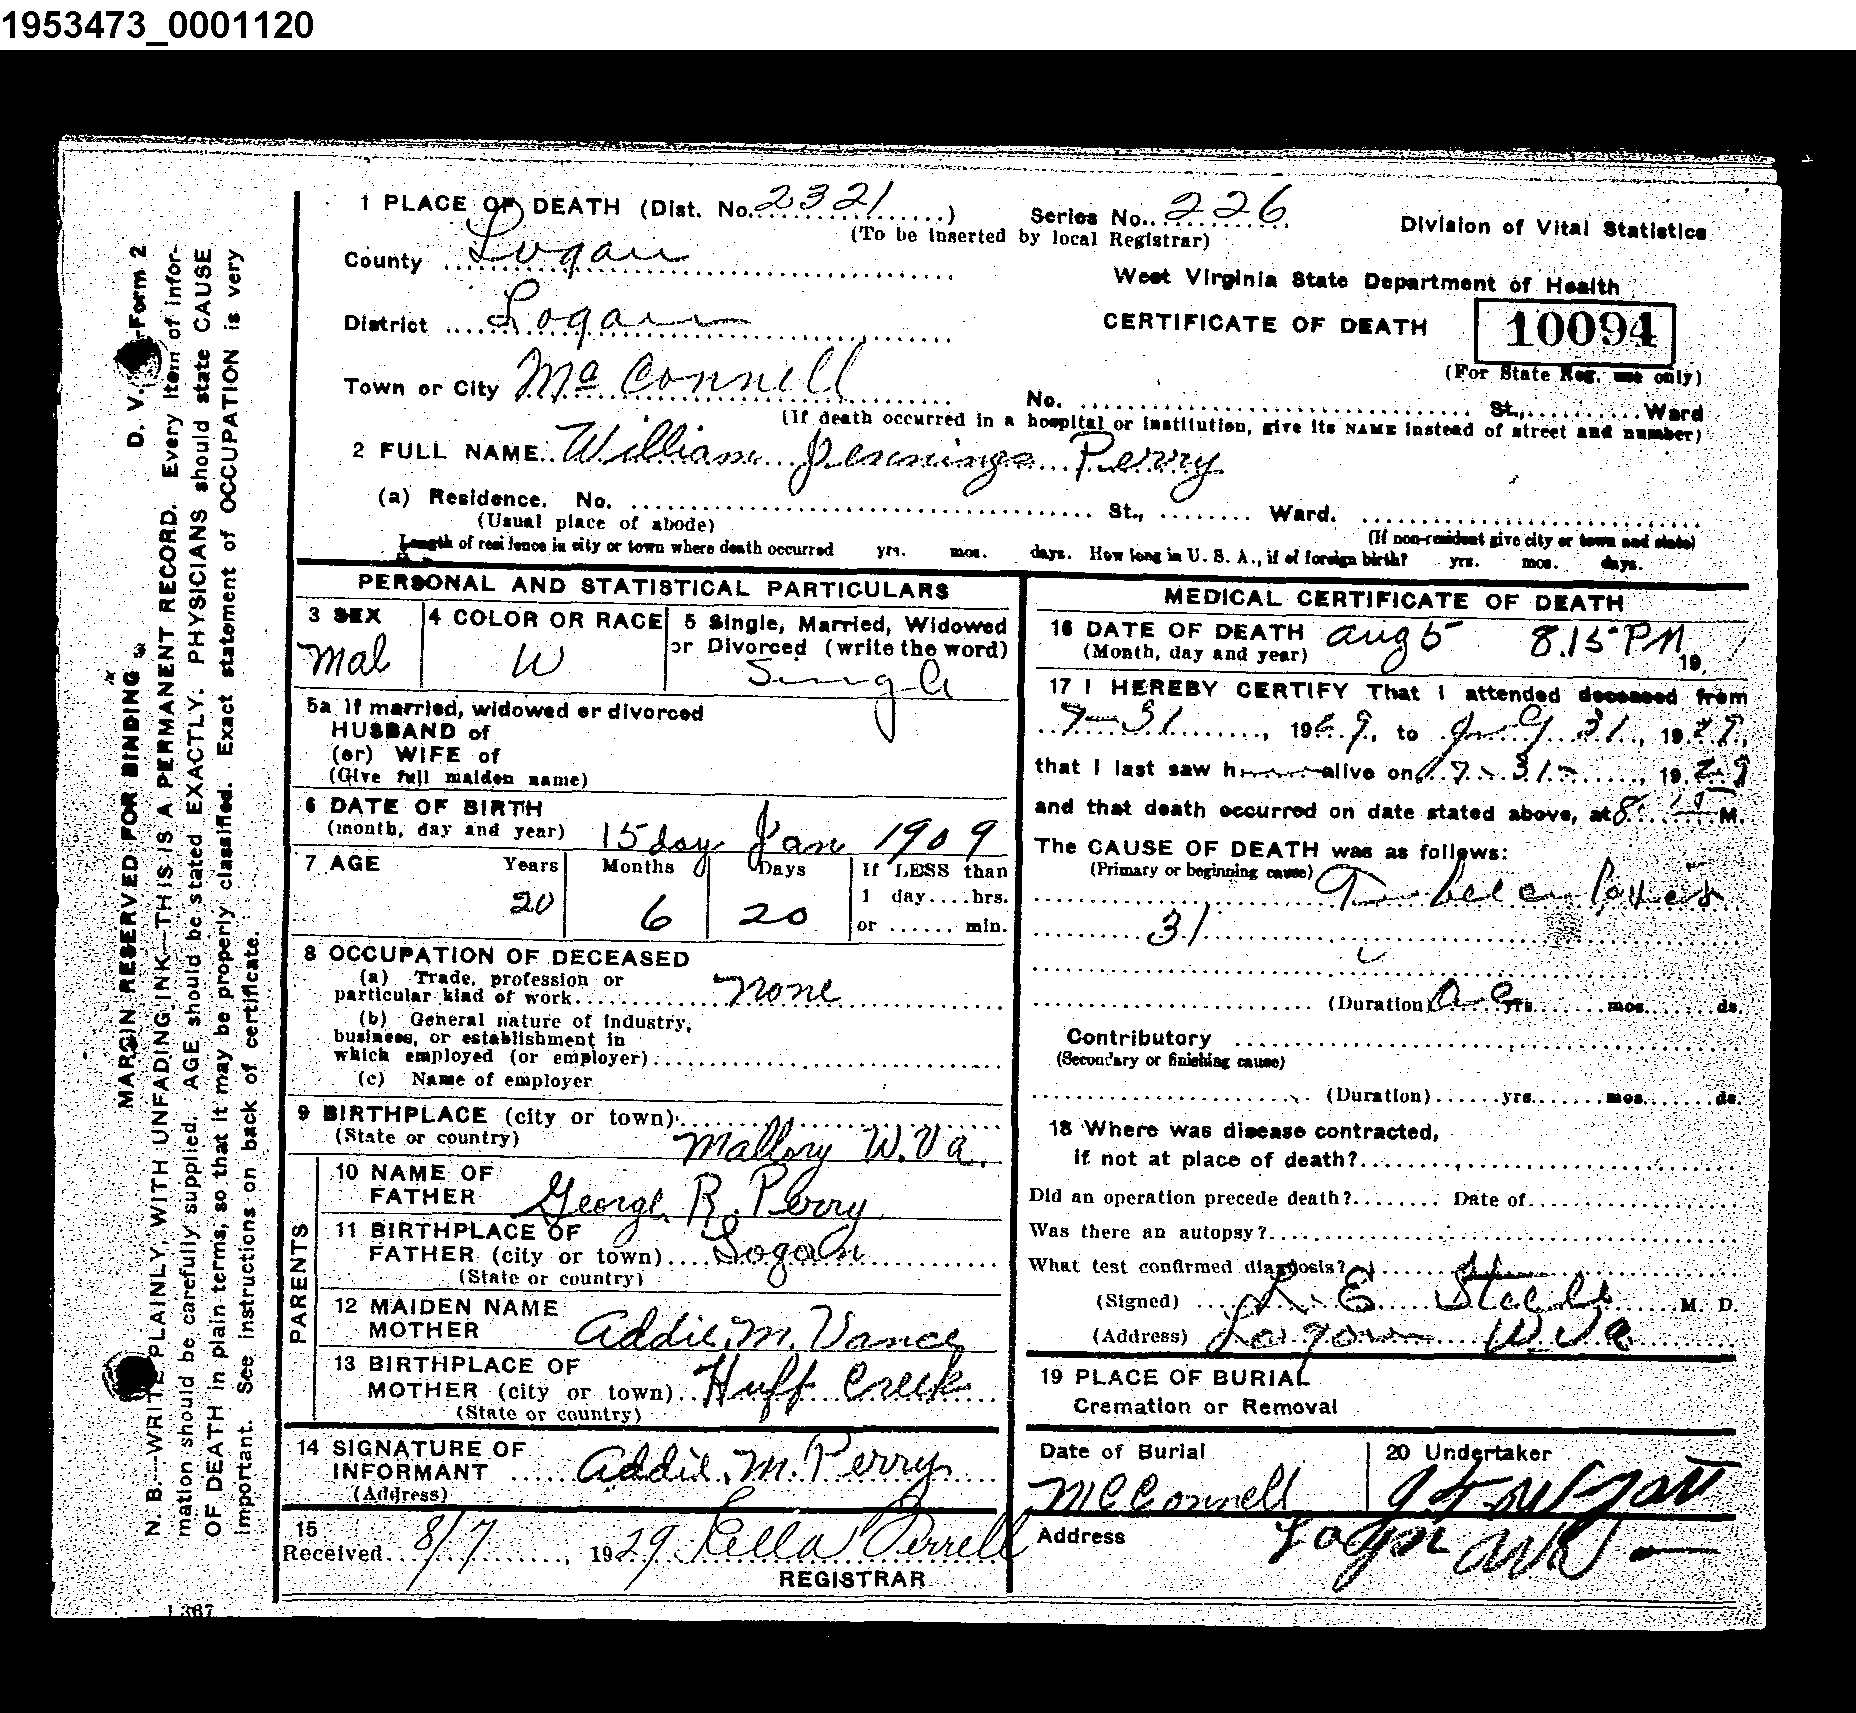 1953473_0001120
1 PLACE OF DEATH (Dist. No. 2321)
Series No. 226
(To be inserted by local Registrar)
Division of Vital Statistics
County Logan
West Virginia State Department of Health
District Logan
CERTIFICATE OF DEATH
10094
(For State Reg. use only)
Town or City McConnell
No. St., Ward
(If death occurred in a hospital or institution, give its NAME instead of street and number)
2 FULL NAME William Jennings Perry
(a) Residence. No. St., Ward.
(Usual place of abode)
(If non-resident give city or town and state)
Length of residence in city or town where death occurred yrs. mos. days. How long in U. S. A., if of foreign birth? yrs. mos. days.
PERSONAL AND STATISTICAL PARTICULARS
3 SEX
Mal
4 COLOR OR RACE
W
5 Single, Married, Widowed
or Divorced (write the word)
Single
5a If married, widowed or divorced
HUSBAND of
(or) WIFE of
(Give full maiden name)
6 DATE OF BIRTH
(month, day and year) 15 day Jan 1909
7 AGE Years Months Days If LESS than
20 6 20
1 day....hrs.
or ...... min.
8 OCCUPATION OF DECEASED
(a) Trade, profession or
particular kind of work none
(b) General nature of industry,
business, or establishment in
which employed (or employer)
(c) Name of employer
9 BIRTHPLACE (city or town)
(State or country) Mallory W. Va.
PARENTS
10 NAME OF
FATHER George R. Perry
11 BIRTHPLACE OF
FATHER (city or town) Logan
(State or country)
12 MAIDEN NAME
MOTHER Addie M. Vance
13 BIRTHPLACE OF
MOTHER (city or town) Huff Creek
(State or country)
14 SIGNATURE OF
INFORMANT Addie M. Perry
(Address)
15
Received 8/7, 1929
REGISTRAR
MEDICAL CERTIFICATE OF DEATH
16 DATE OF DEATH Aug 5 8.15 PM
(Month, day and year) 19
17 I HEREBY CERTIFY That I attended deceased from
7-31, 1929, to 31, 1929,
that I last saw h alive on 7-31-, 1929
and that death occurred on date stated above, at 8 15 M.
The CAUSE OF DEATH was as follows:
(Primary or beginning cause) Tuberculosis
31
(Duration) yrs. mos. ds.
Contributory
(Secondary or finishing cause)
(Duration) yrs. mos. ds.
18 Where was disease contracted,
if not at place of death?
Did an operation precede death? Date of
Was there an autopsy?
What test confirmed diagnosis?
(Signed) L. E. Steele M. D.
(Address) Logan W Va
19 PLACE OF BURIAL
Cremation or Removal
Date of Burial
McConnell
20 Undertaker
Address
Logan
D. V. Form 2
MARGIN RESERVED FOR BINDING
N. B.—WRITE PLAINLY, WITH UNFADING INK—THIS IS A PERMANENT RECORD. Every item of infor-
mation should be carefully supplied. AGE should be stated EXACTLY. PHYSICIANS should state CAUSE
OF DEATH in plain terms, so that it may be properly classified. Exact statement of OCCUPATION is very
important. See instructions on back of certificate.